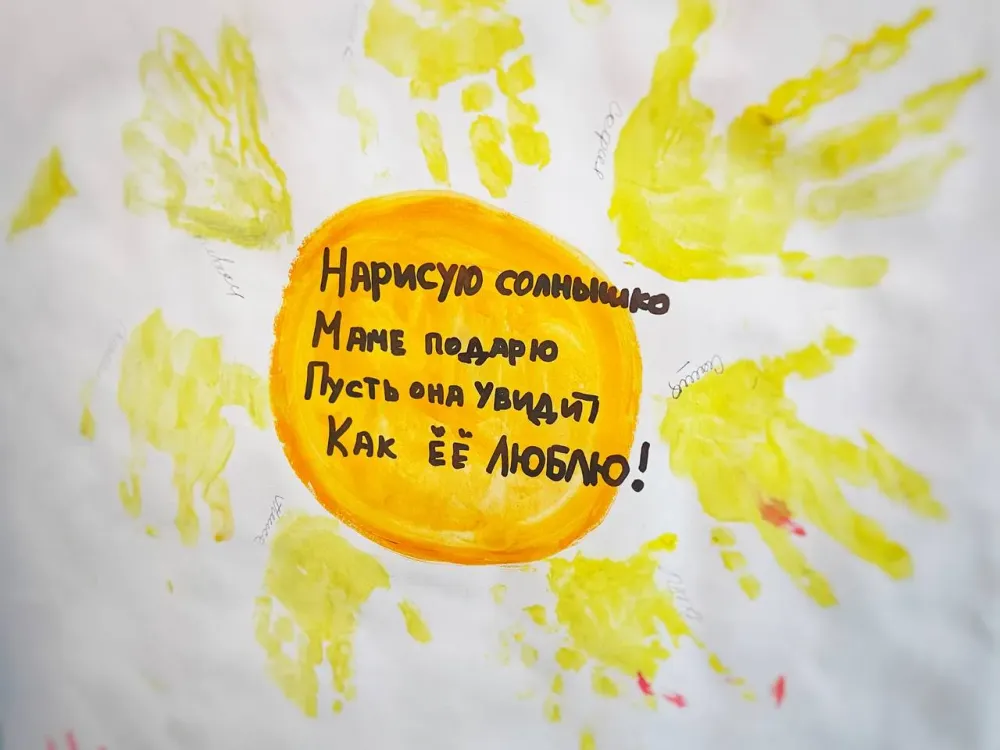 Нарисую солнышко
Маме подарю
Пусть она увидит
Как её люблю!
София
Саша